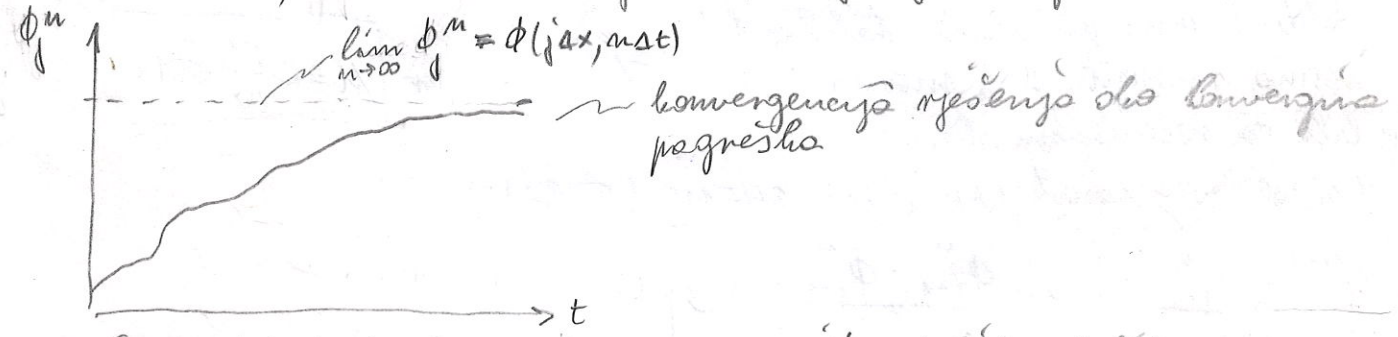 ϕ_j^n
lim_{n→∞} ϕ_j^n = ϕ(jΔx, nΔt)
konvergencija rješenja ako konvergira
pogreška
t